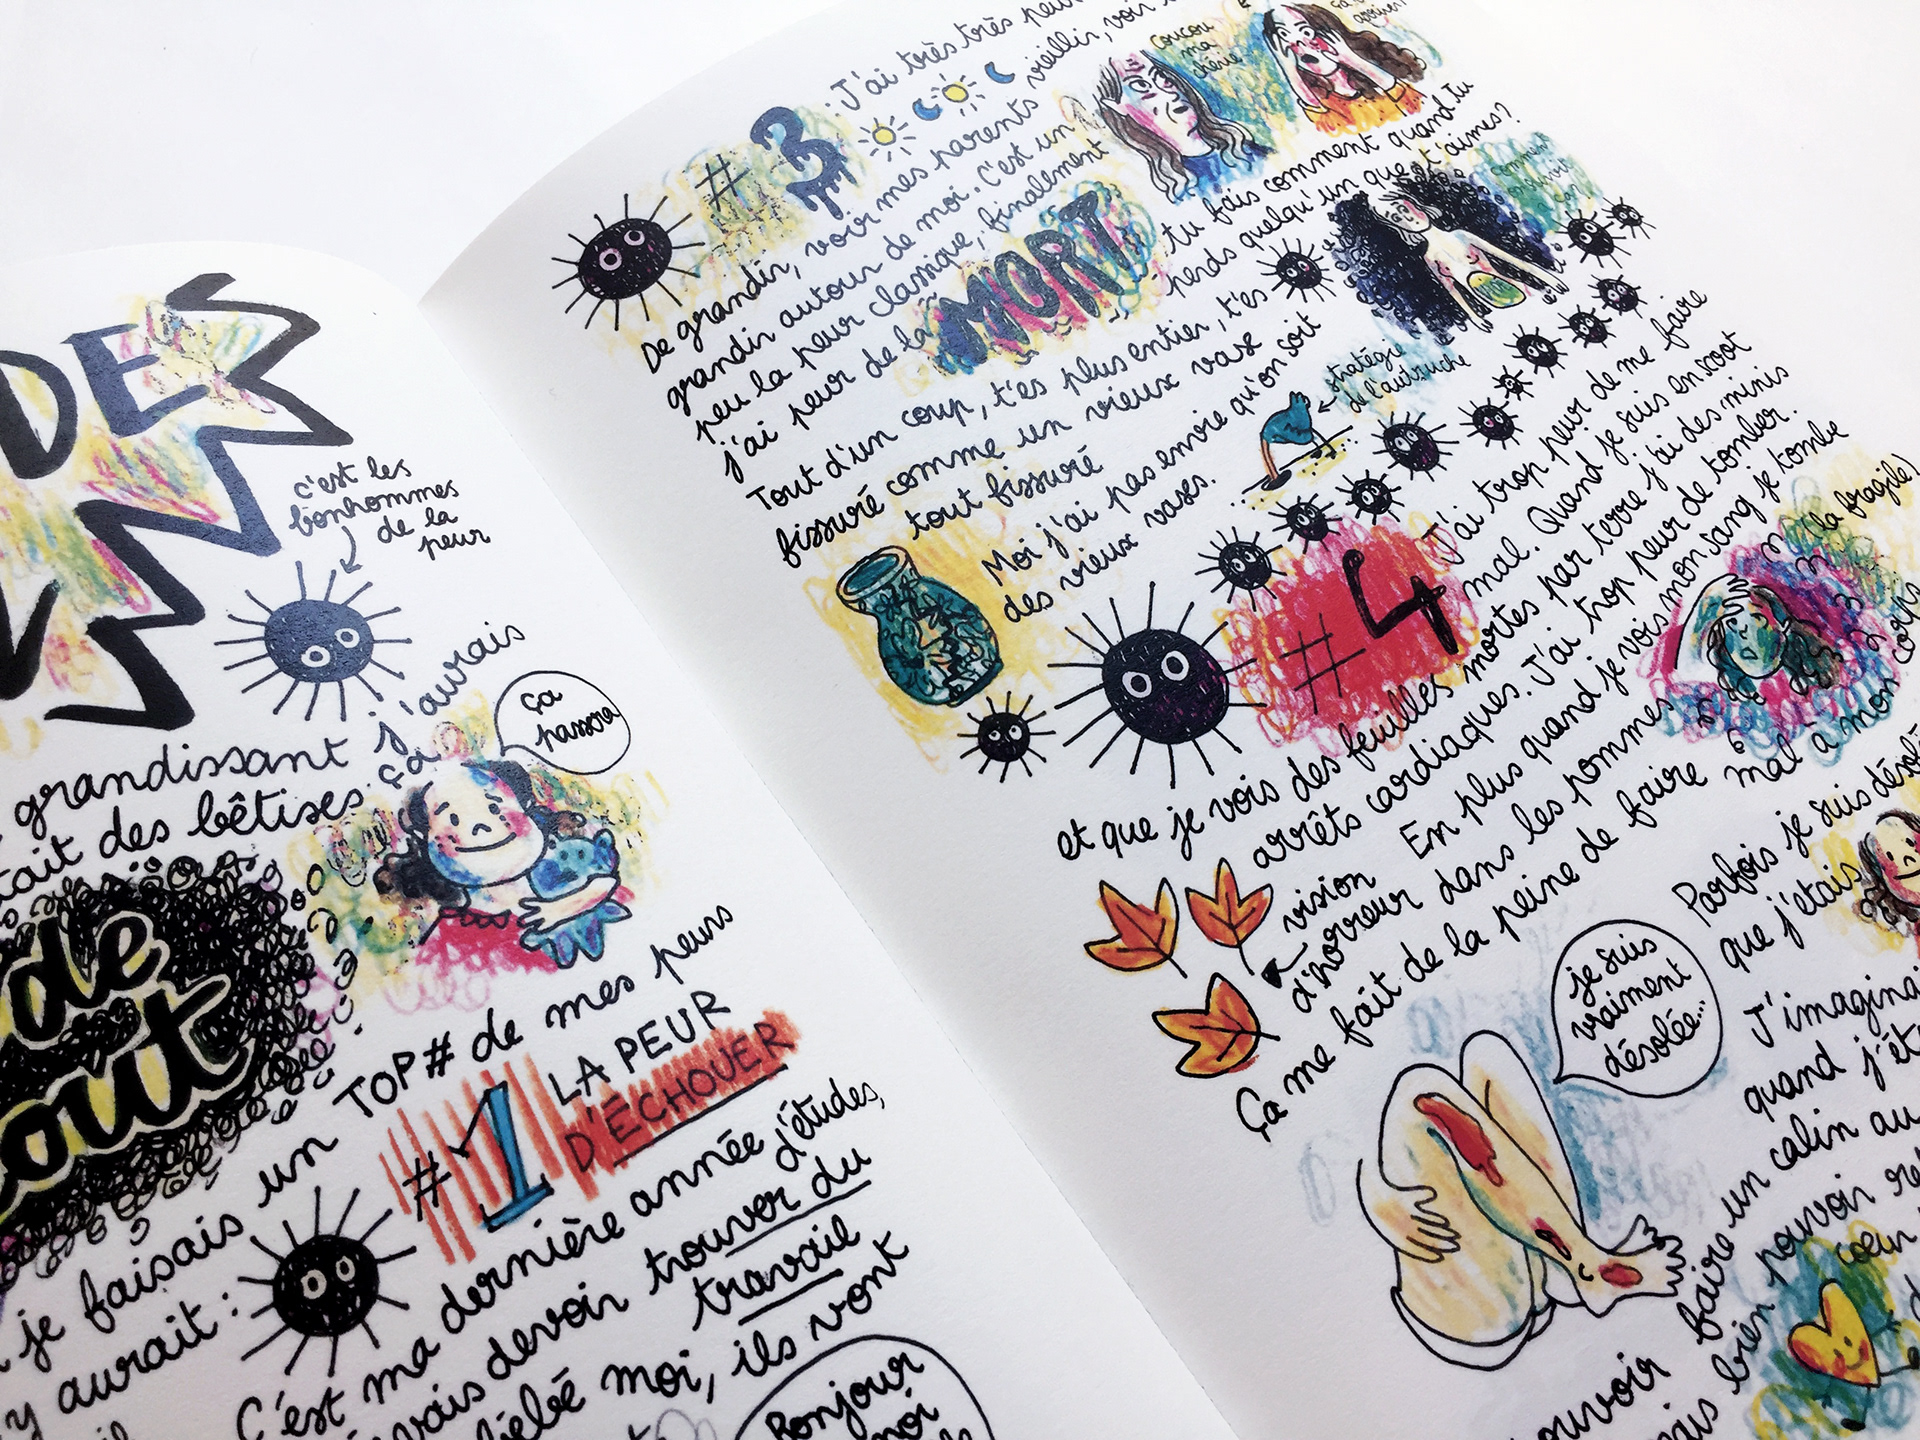 DE
c'est les
bonhommes
de la
peur
grandissant j'aurais
des bêtises. ça
ça
passera
de
out
je faisais un TOP# de mes peurs
y aurait :
#1 LA PEUR
D'ÉCHOUER
C'est ma dernière année d'études,
devoir trouver du
travail
moi, ils vont
Bonjour
#3 : J'ai très très peur
De grandir, voir mes parents vieillir, voir
grandir autour de moi. C'est un
peu la peur classique, finalement
j'ai peur de la MORT
coucou
ma
chérie
tu fais comment quand tu
perds quelqu'un que t'aimes?
Tout d'un coup, t'es plus entier, t'es
fissuré comme un vieux vase
tout fissuré
Moi j'ai pas envie qu'on soit
des vieux vases.
stratégie
de l'autruche
#4 J'ai trop peur de me faire
mal. Quand je suis en scoot
et que je vois des feuilles mortes par terre j'ai des minis
arrêts cardiaques. J'ai trop peur de tomber.
vision
d'horreur
En plus quand je vois mon sang je tombe
dans les pommes
(la fragile)
Ça me fait de la peine de faire mal à mon corps
je suis
vraiment
désolée...
Parfois je suis
que j'étais
quand
faire un calin au
bien pouvoir
coeur